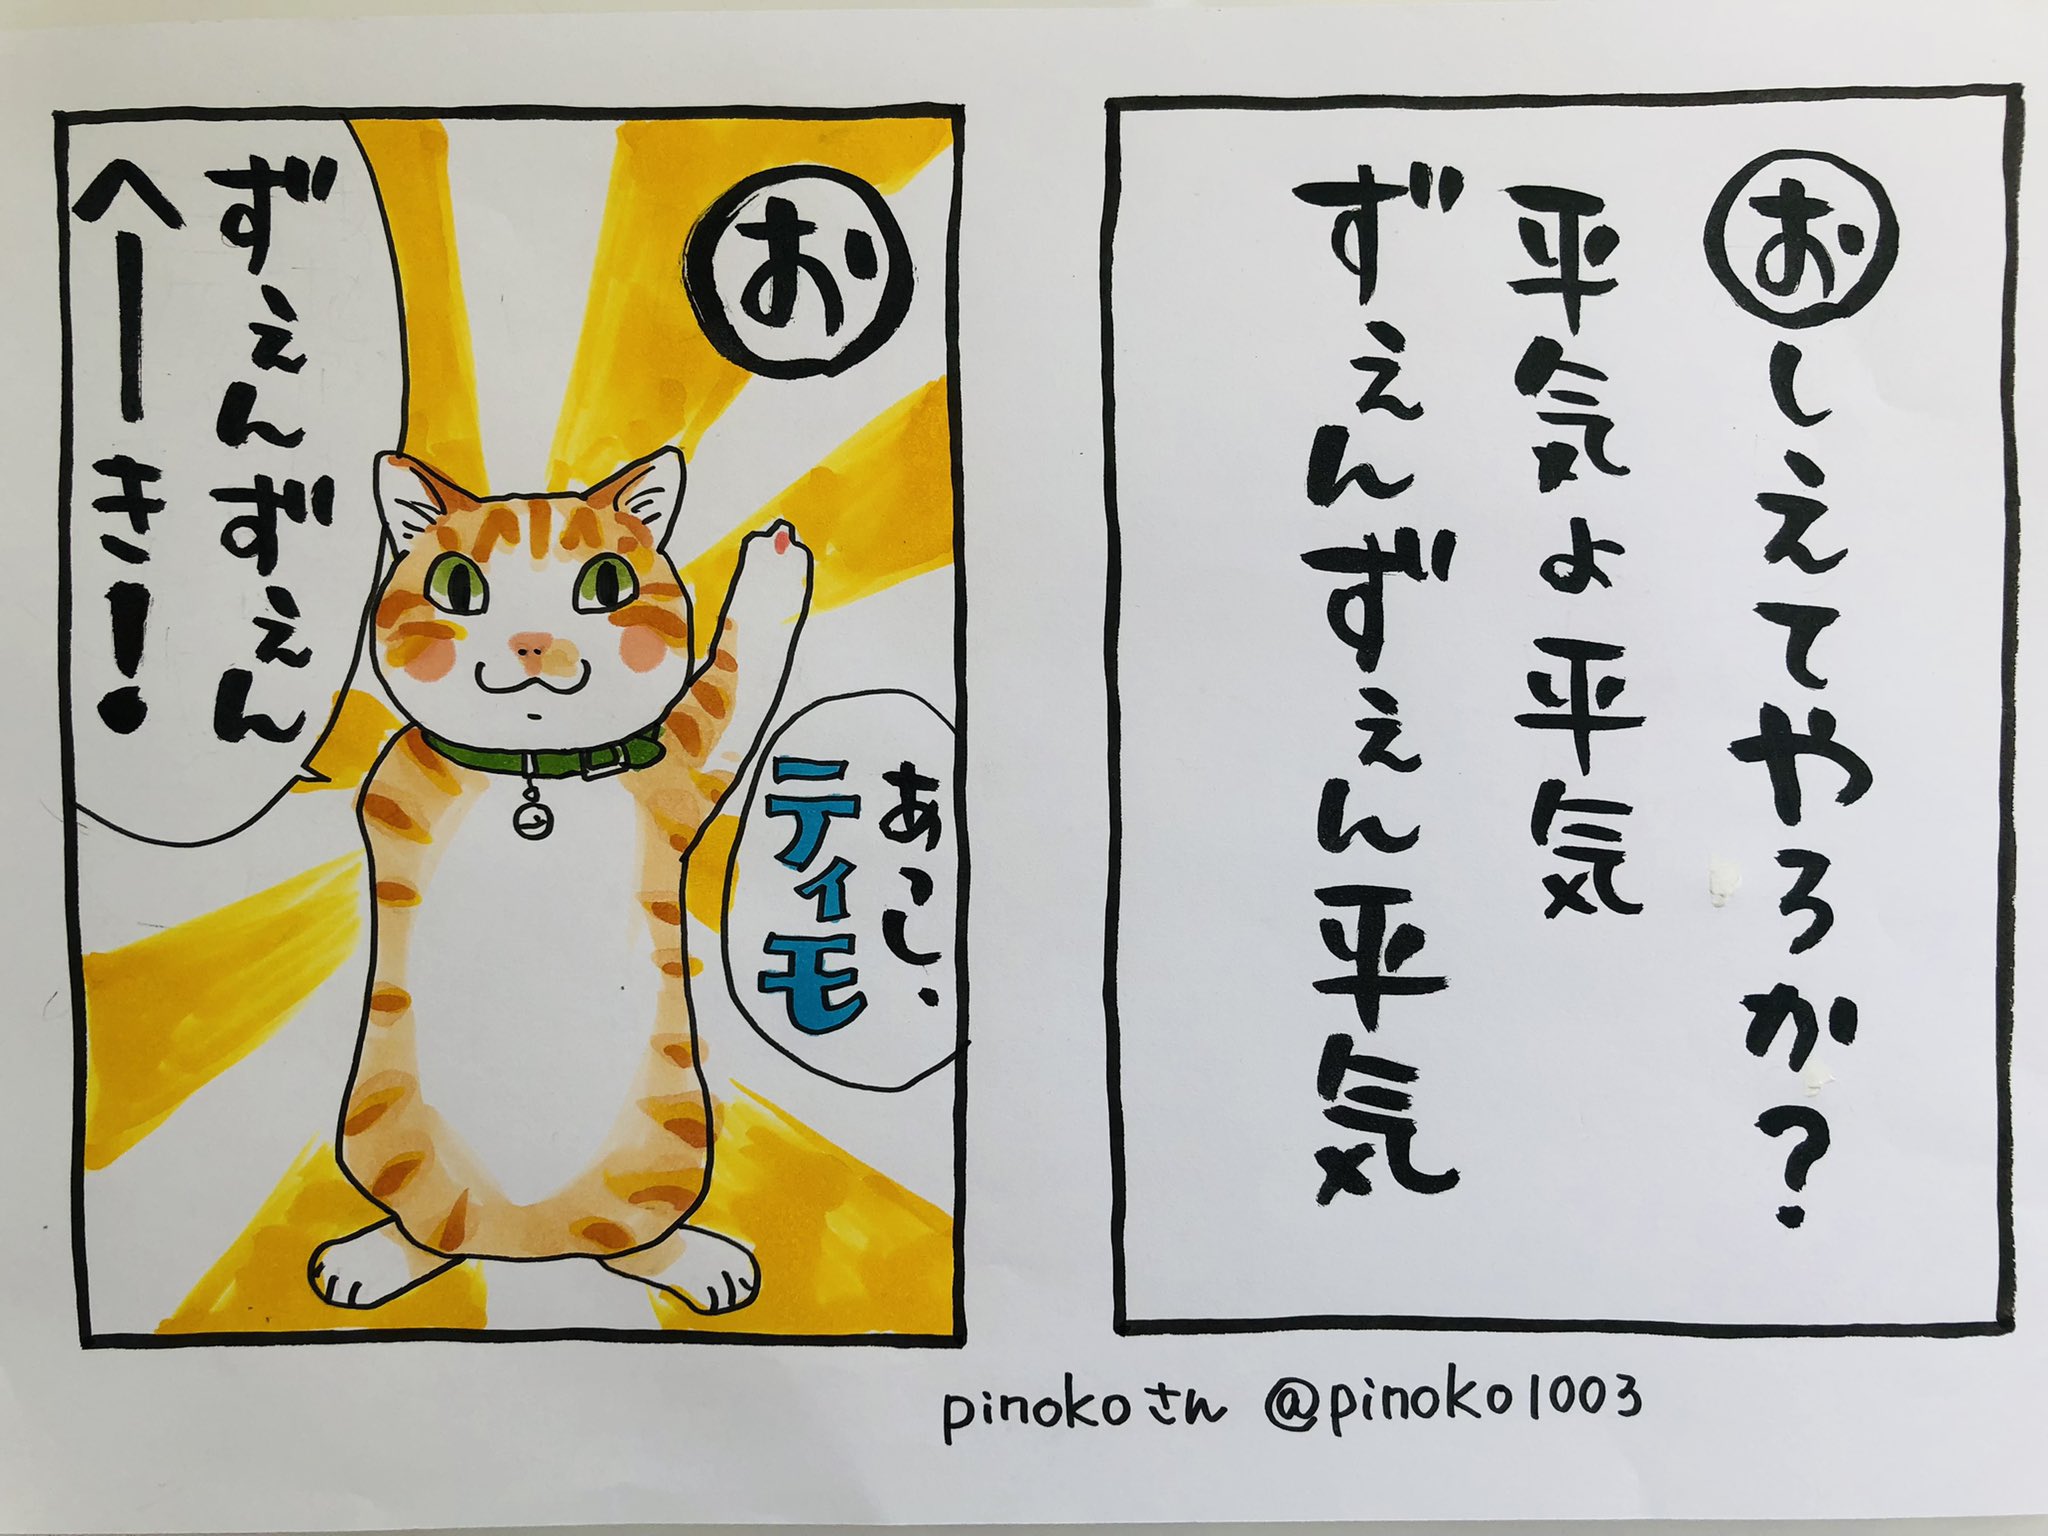 おしえてやろか?
平気よ平気
ずぇんずぇん平気
お
あっし、
ティモ
ずぇんずぇん
へーき!
pinokoさん @pinoko1003